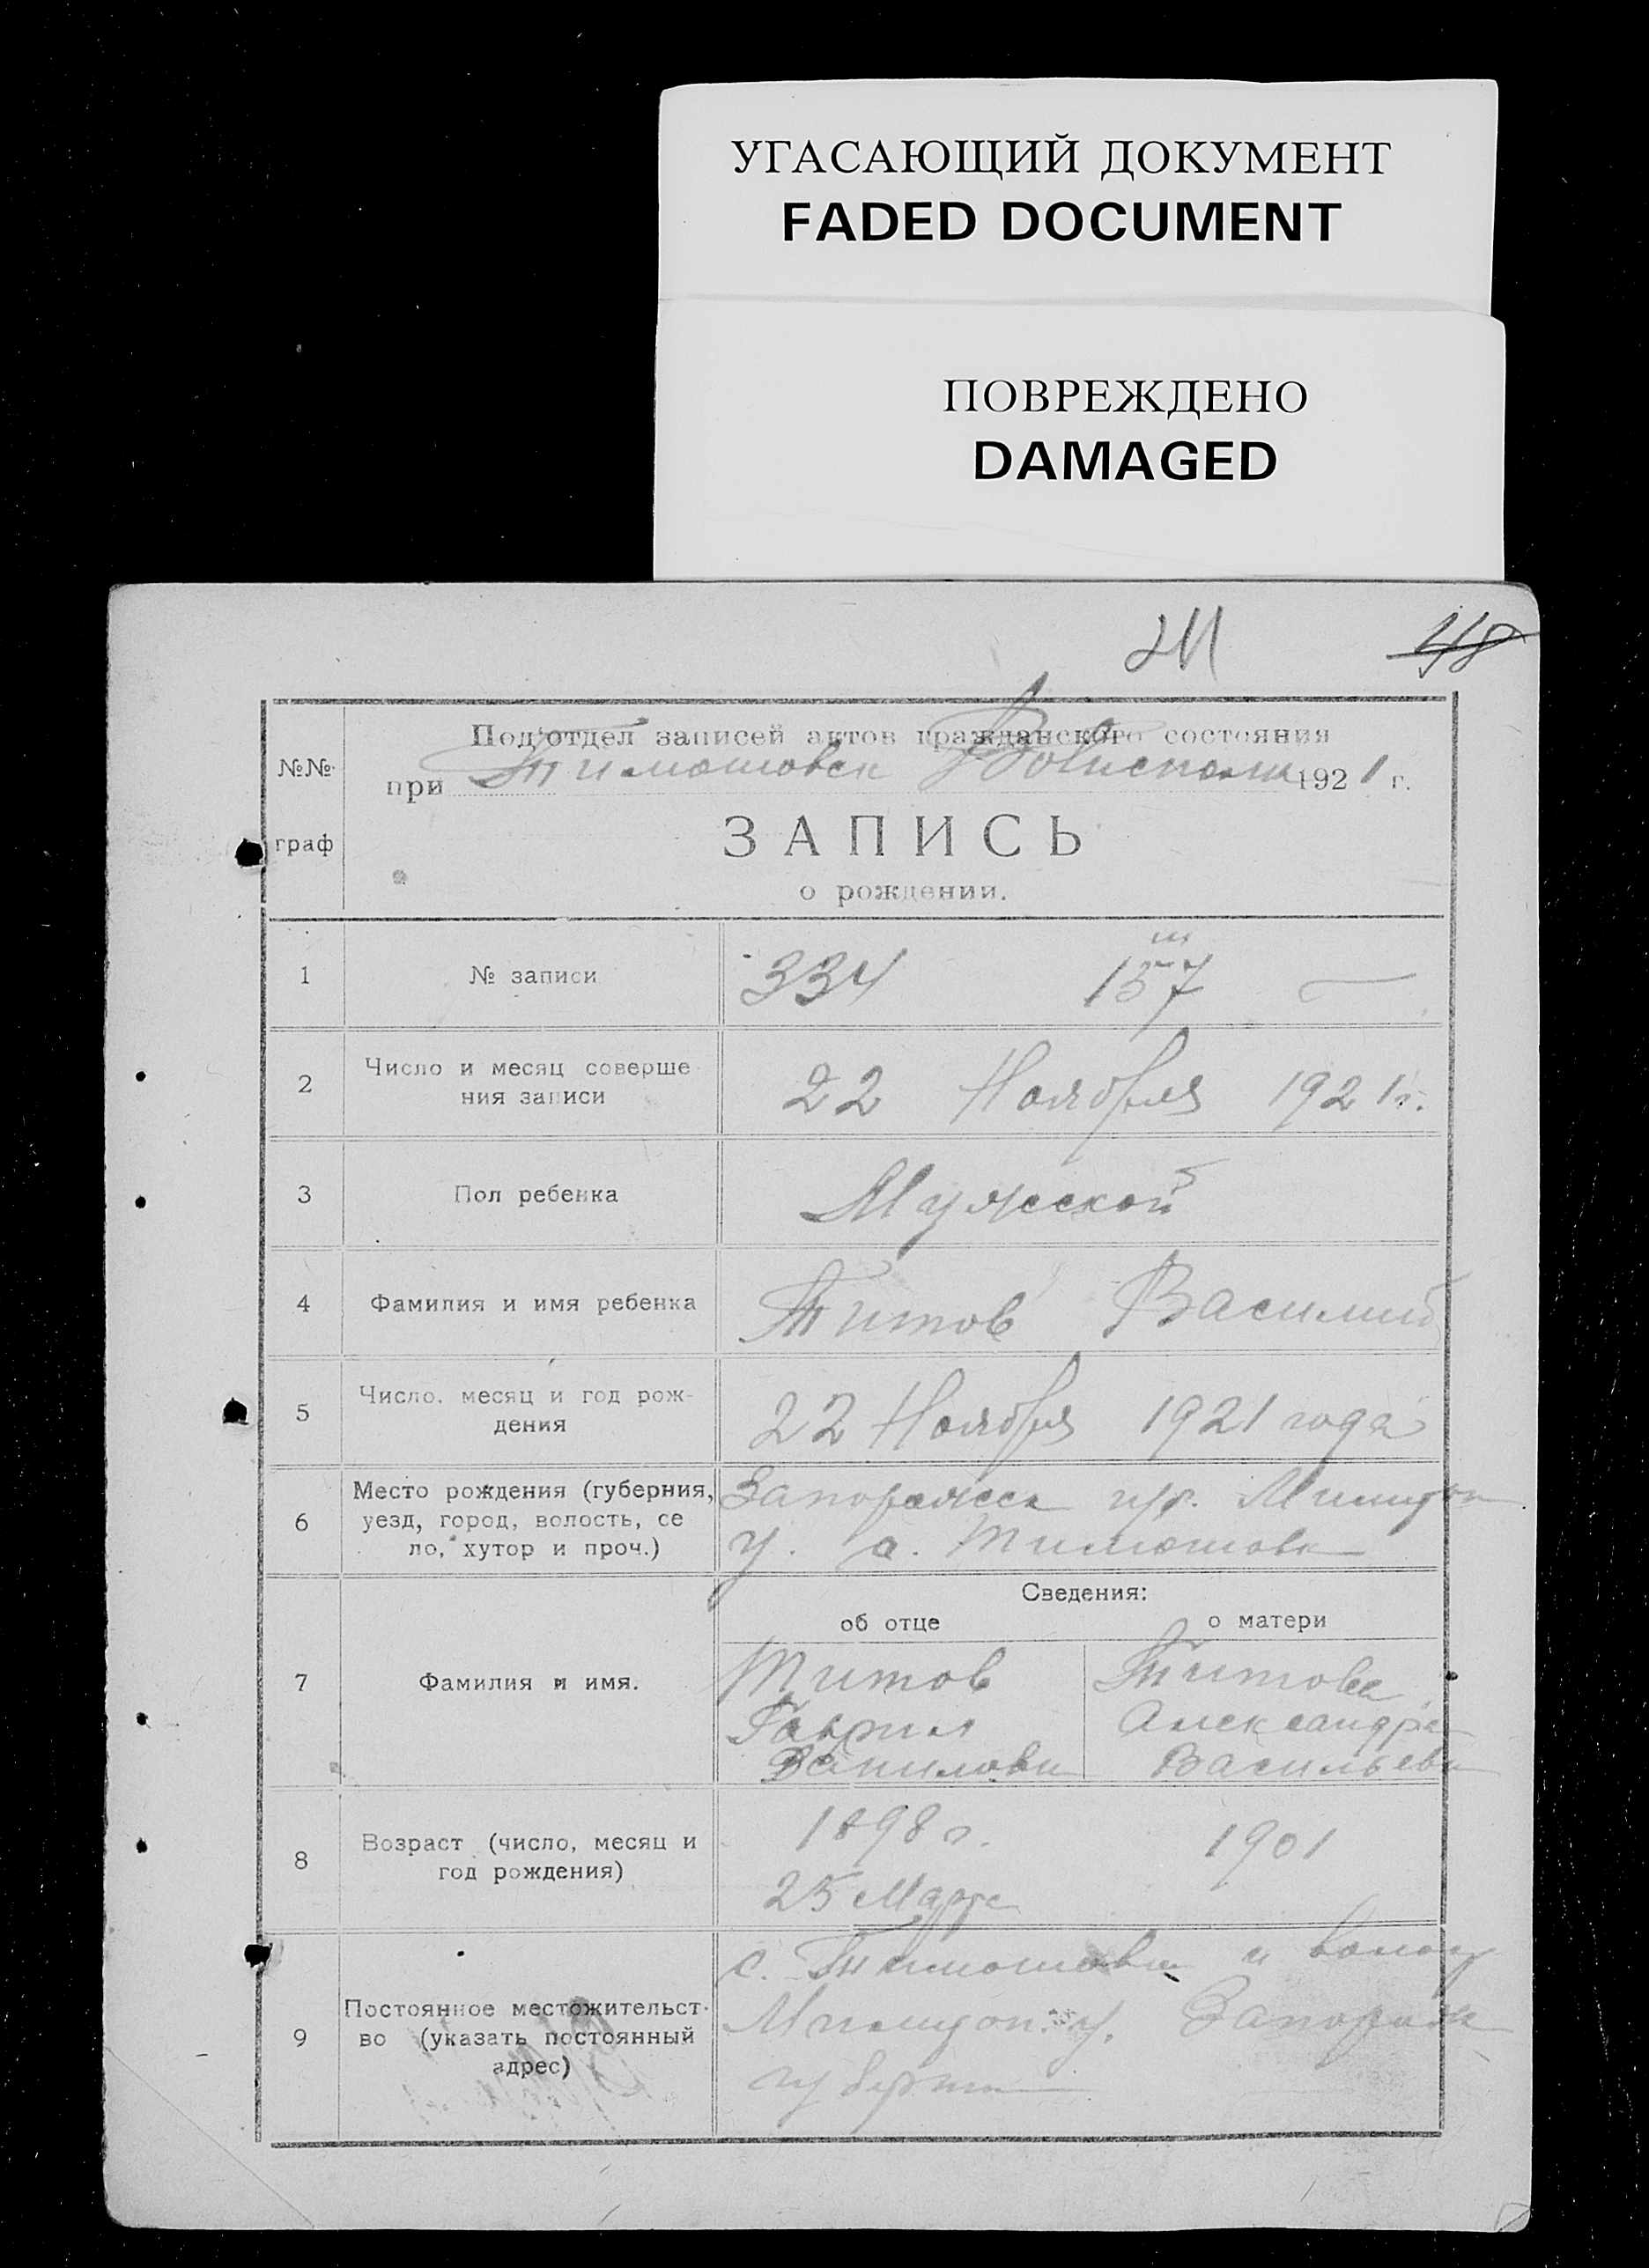 УГАСАЮЩИЙ ДОКУМЕНТ
FADED DOCUMENT
ПОВРЕЖДЕНО
DAMAGED
211 48
№№ граф
Под'отдел записей актов гражданского состояния
при Тимошовск Волисполк 1921 г.
ЗАПИСЬ
о рождении.
1 № записи 334 157
2 Число и месяц соверше
ния записи 22 Ноября 1921 г.
3 Пол ребенка Мужской
4 Фамилия и имя ребенка Титов Василий
5 Число, месяц и год рож-
дения 22 Ноября 1921 года
6 Место рождения (губерния,
уезд, город, волость, се
ло, хутор и проч.)
Запорожск губ. Мелитоп
у. с. Тимошовк
Сведения:
об отце о матери
7 Фамилия и имя.
Титов Титова
Гаврил Александра
Васильевн
8 Возраст (число, месяц и
год рождения)
1898 г. 1901
25 Марта
9 Постоянное местожительст-
во (указать постоянный
адрес)
с. Тимошовки и волост
Мелитоп. у. Запорож
губерни